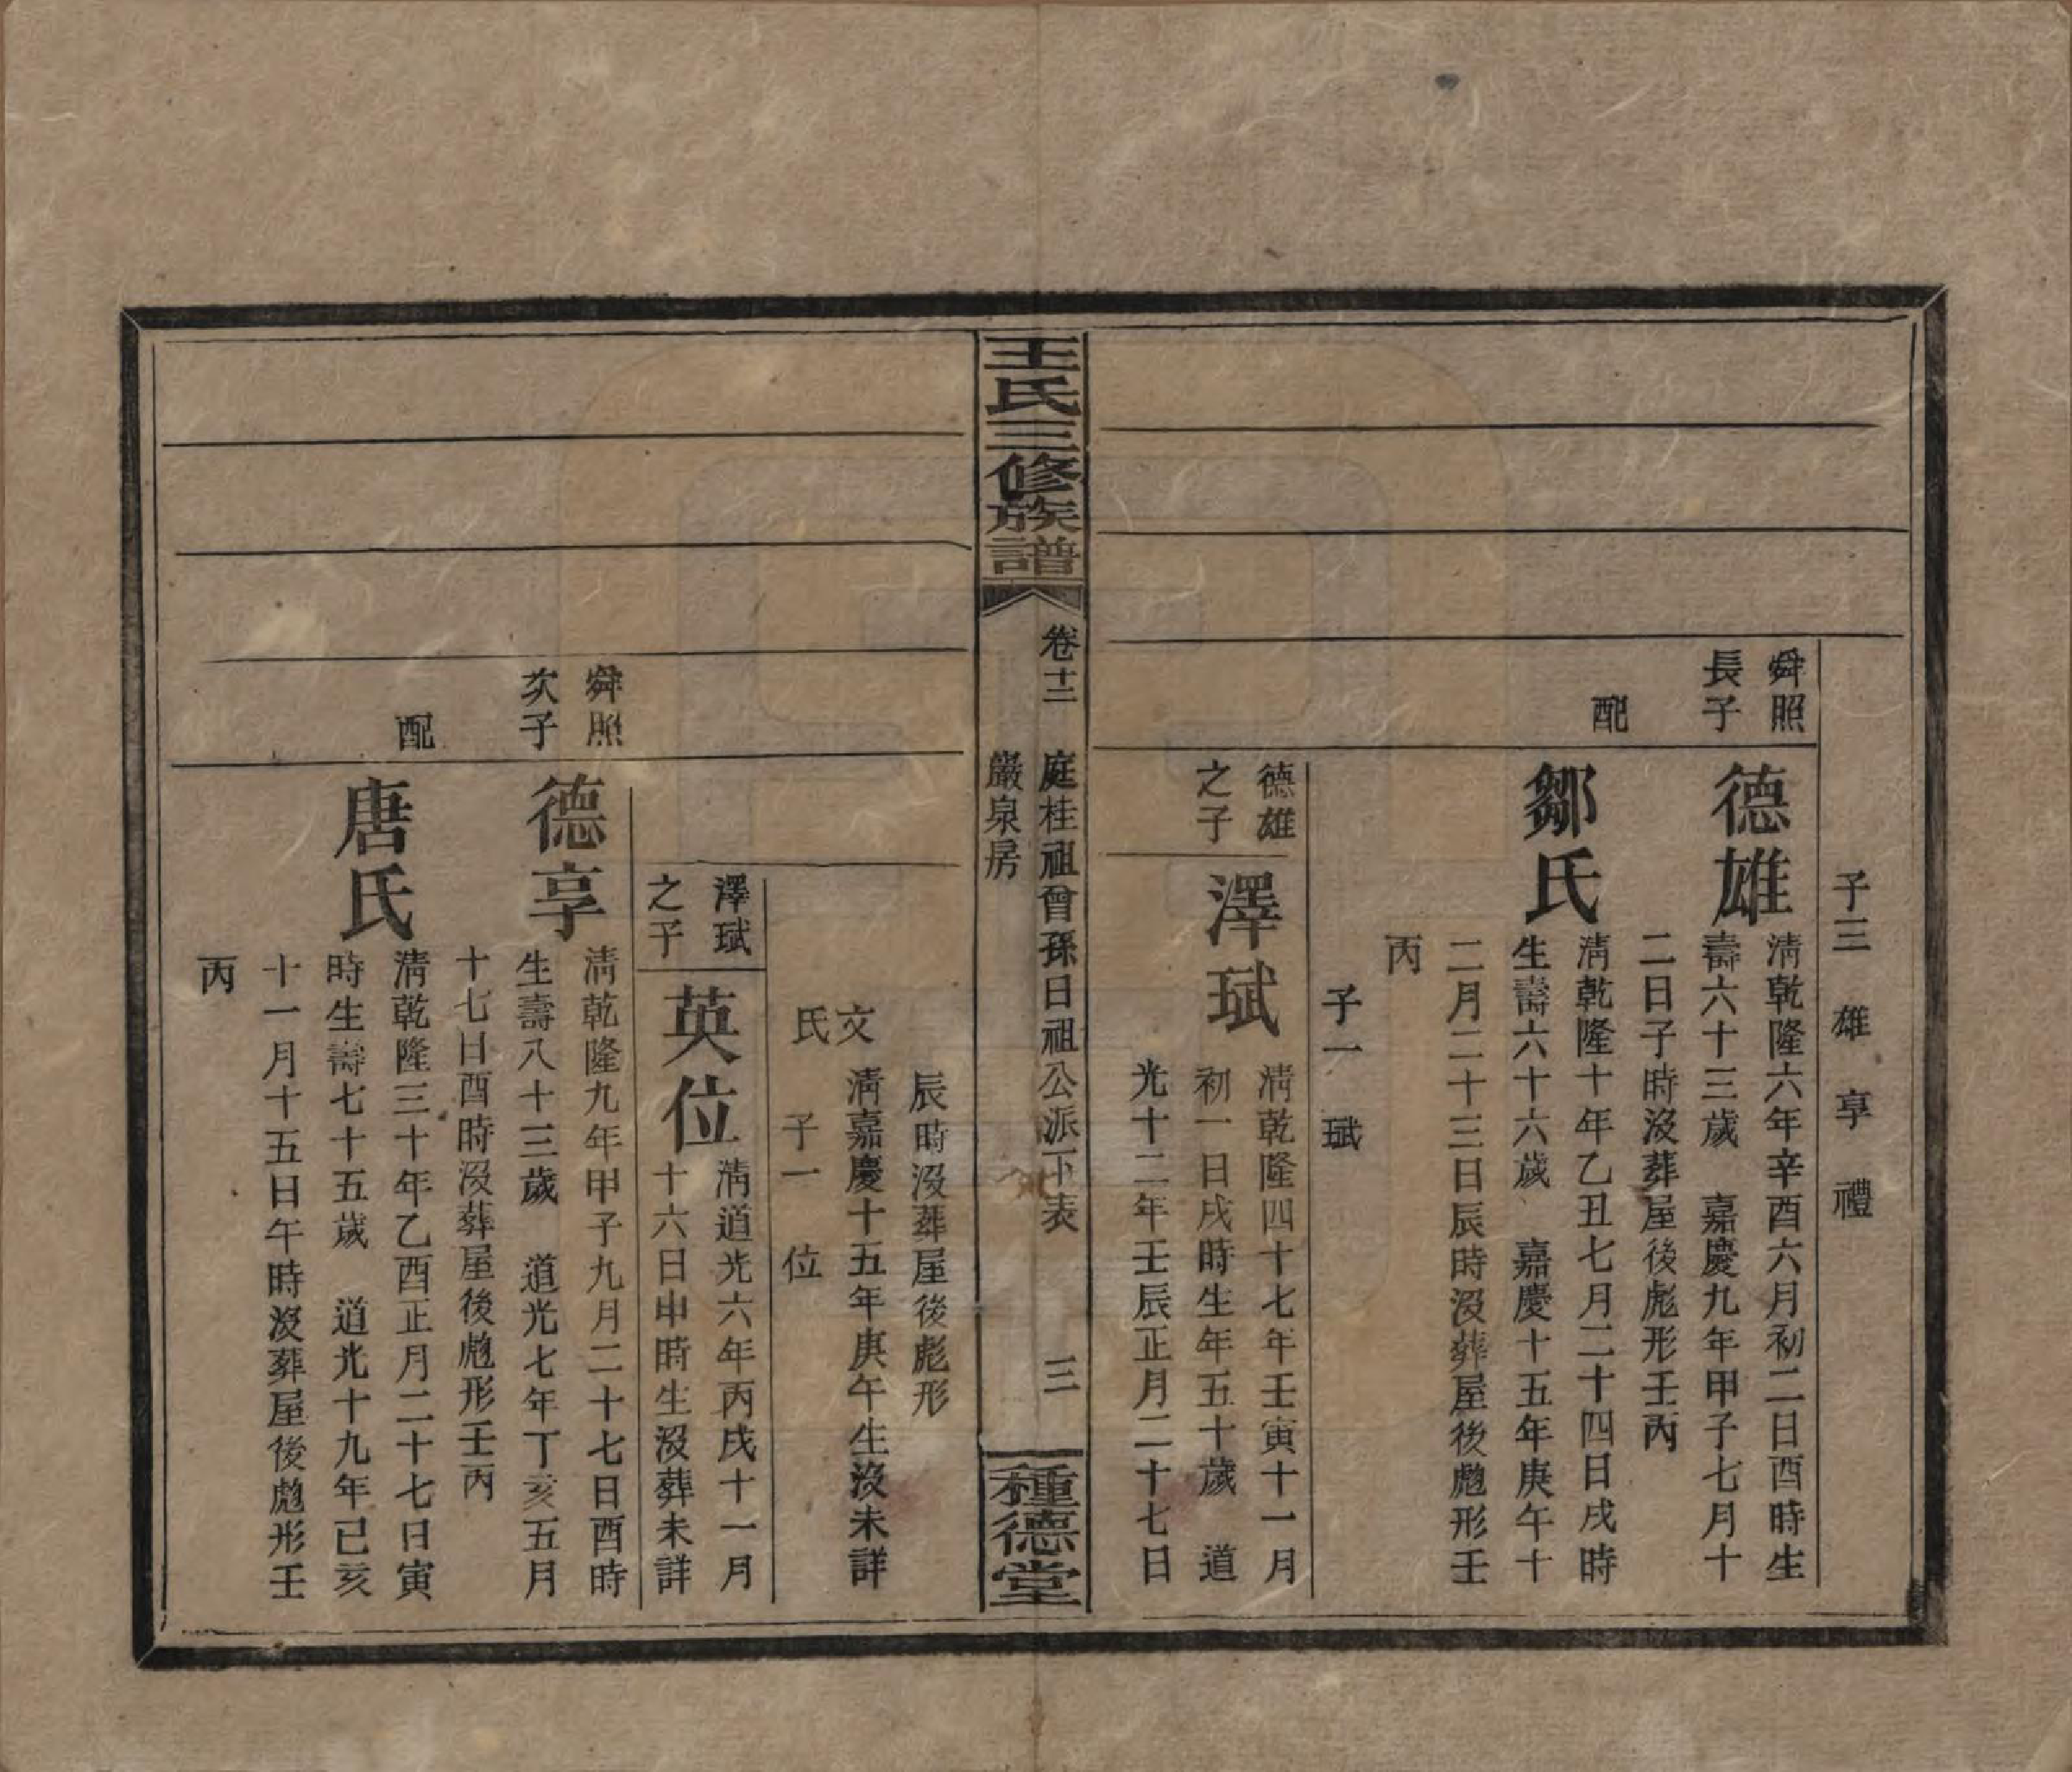 子三　雄　享　禮
舜照
長子
德雄
淸乾隆六年辛酉六月初二日酉時生
壽六十三歲　嘉慶九年甲子七月十
二日子時沒葬屋後彪形壬丙
配
鄒氏
淸乾隆十年乙丑七月二十四日戌時
生壽六十六歲　嘉慶十五年庚午十
二月二十三日辰時沒葬屋後彪形壬
丙
子一　珷
德雄
之子
澤珷
淸乾隆四十七年壬寅十一月
初一日戌時生年五十歲　道
光十二年壬辰正月二十七日
王氏三修族譜
卷十二　庭桂祖曾孫日祖公派下表　三
巖泉房
種德堂
辰時沒葬屋後彪形
文氏
淸嘉慶十五年庚午生沒未詳
子一　位
澤珷
之子
英位
淸道光六年丙戌十一月
十六日申時生沒葬未詳
舜照
次子
德享
淸乾隆九年甲子九月二十七日酉時
生壽八十三歲　道光七年丁亥五月
十七日酉時沒葬屋後彪形壬丙
配
唐氏
淸乾隆三十年乙酉正月二十七日寅
時生壽七十五歲　道光十九年己亥
十一月十五日午時沒葬屋後彪形壬
丙